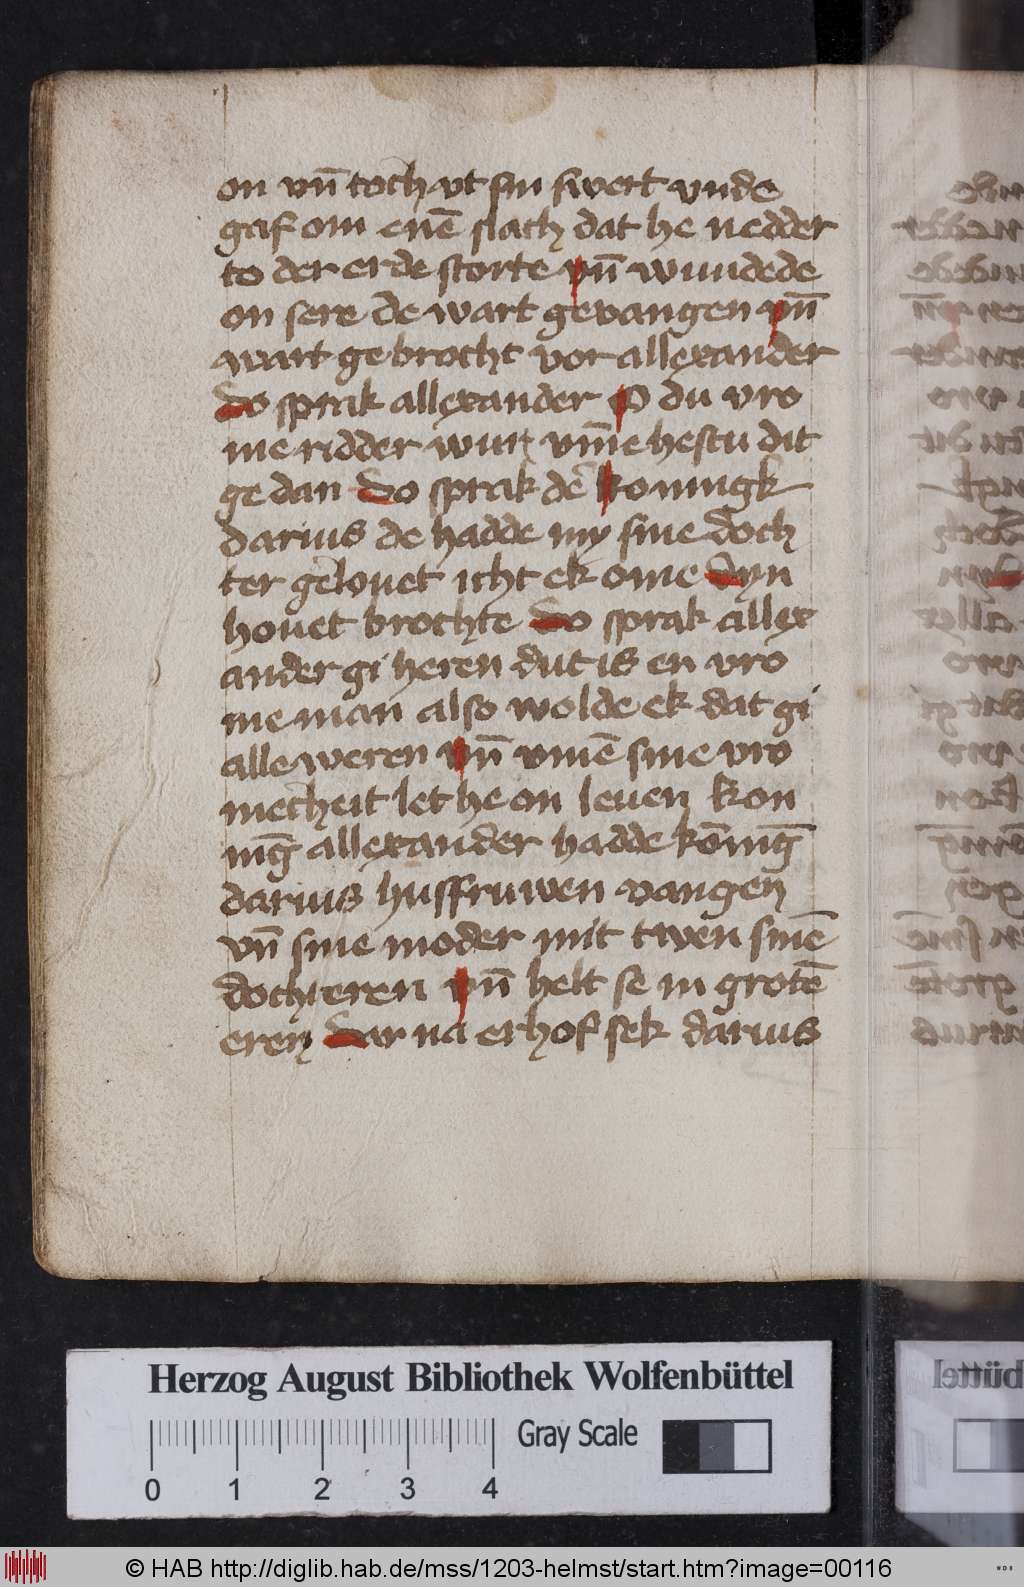 on vn̄ toch vt sin swert vnde
gaf om enē slach dat he nedder
to der erde storte vn̄ wundede
on sere de wart gevangen vn̄
wart gebrocht vor allexander
do sprak allexander O du vro
me ridder wur vm̄e hestu dit
gedan Do sprak de koningk
darius de hadde my sine doch
ter gelouet icht ek ome dyn
houet brochte do sprak allex
ander gi heren dut is en vro
me man also wolde ek dat gi
alle weren vn̄ vmē sine vro
mecheit let he on leuen kon
niḡ allexander hadde kōniḡ
darius husffruwen vangen
vn̄ sine moder mit twen sinē
dochteren vn̄ helt se in grotē
eren Dar na erhof sek darius
Herzog August Bibliothek Wolfenbüttel
0 1 2 3 4
Gray Scale
© HAB http://diglib.hab.de/mss/1203-helmst/start.htm?image=00116